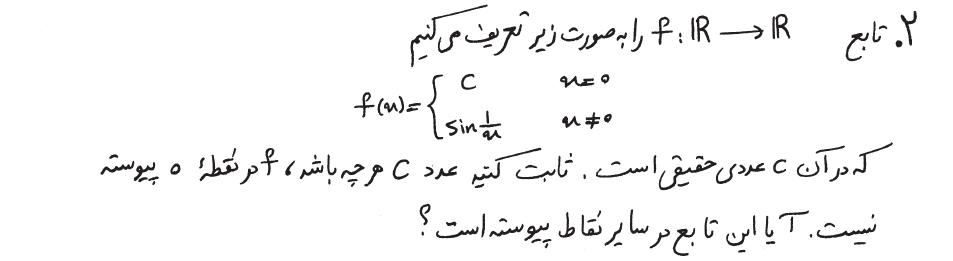 ۲. تابع f : ℝ → ℝ را به صورت زیر تعریف می‌کنیم
f(x) = { C    x = 0
sin 1/x    x ≠ 0
که در آن C عددی حقیقی است. ثابت کنید عدد C هر چه باشد، f در نقطهٔ 0 پیوسته
نیست. آیا این تابع در سایر نقاط پیوسته است؟